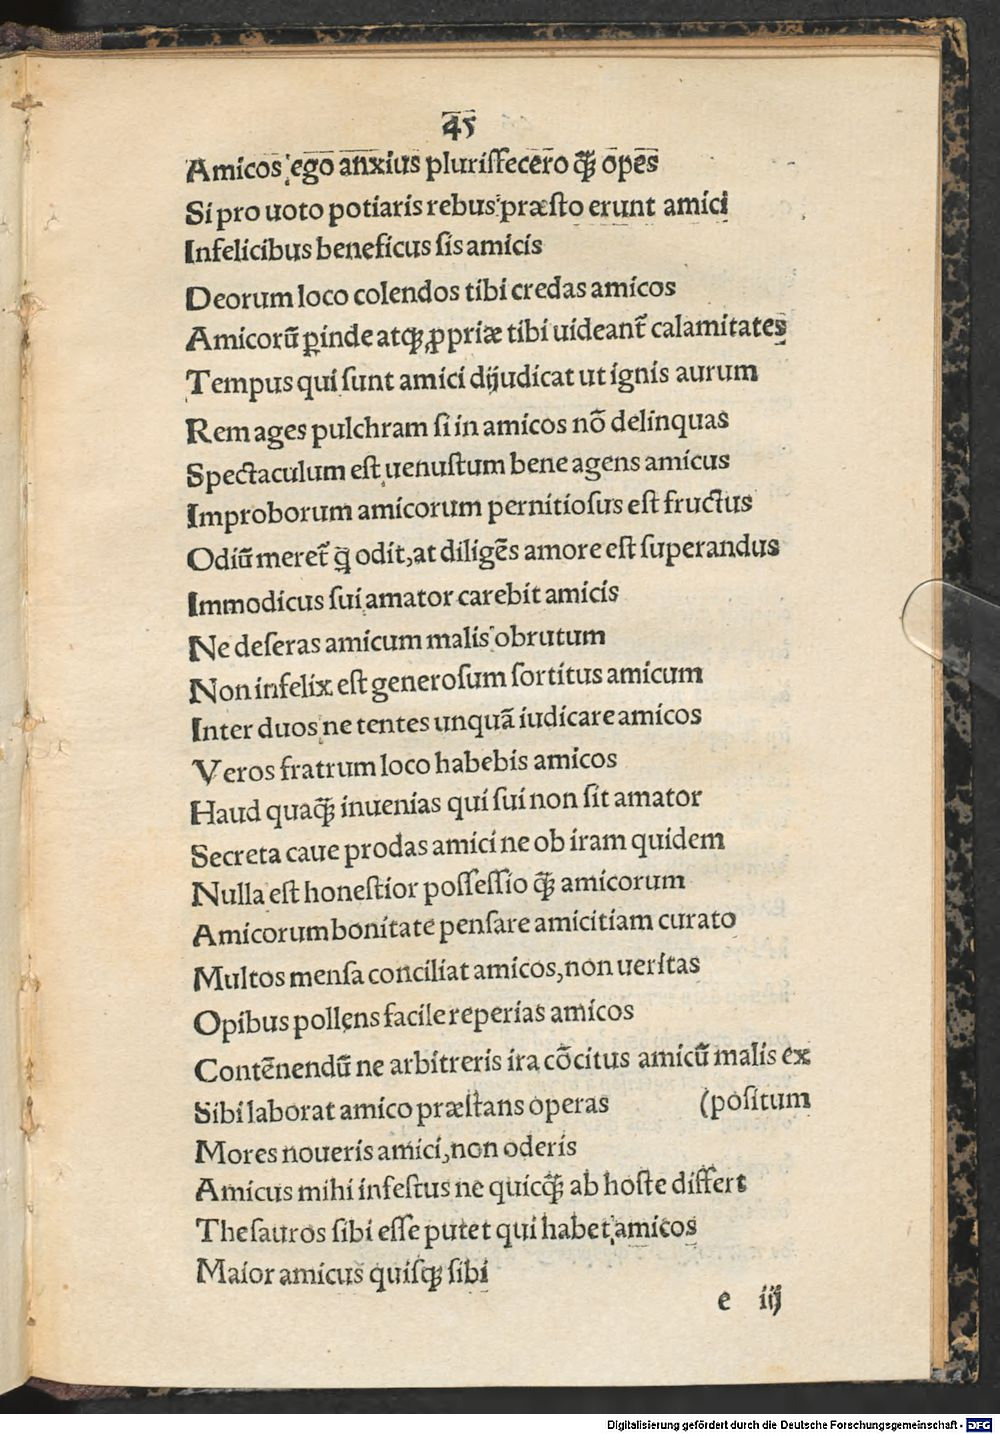 45
Amicos ego anxius plurisfecero q̃ʒ opes
Si pro uoto potiaris rebus præsto erunt amici
Infelicibus beneficus sis amicis
Deorum loco colendos tibi credas amicos
Amicorũ ꝑinde atqʒ ꝓpriæ tibi uideant̃ calamitates
Tempus qui sunt amici dijudicat ut ignis aurum
Rem ages pulchram si in amicos nõ delinquas
Spectaculum est uenustum bene agens amicus
Improborum amicorum pernitiosus est fructus
Odiũ meret̃ q̃ odit, at diligẽs amore est superandus
Immodicus sui amator carebit amicis
Ne deseras amicum malis obrutum
Non infelix est generosum sortitus amicum
Inter duos ne tentes unquã iudicare amicos
Veros fratrum loco habebis amicos
Haud quaq̃ʒ inuenias qui sui non sit amator
Secreta caue prodas amici ne ob iram quidem
Nulla est honestior possessio q̃ʒ amicorum
Amicorum bonitate pensare amicitiam curato
Multos mensa conciliat amicos, non ueritas
Opibus pollens facile reperias amicos
Contẽnendũ ne arbitreris ira cõcitus amicũ malis ex
Sibi laborat amico præstans operas (positum
Mores noueris amici, non oderis
Amicus mihi infestus ne quicq̃ʒ ab hoste differt
Thesauros sibi esse putet qui habet amicos
Maior amicus quisqʒ sibi
e iij
Digitalisierung gefördert durch die Deutsche Forschungsgemeinschaft - DFG